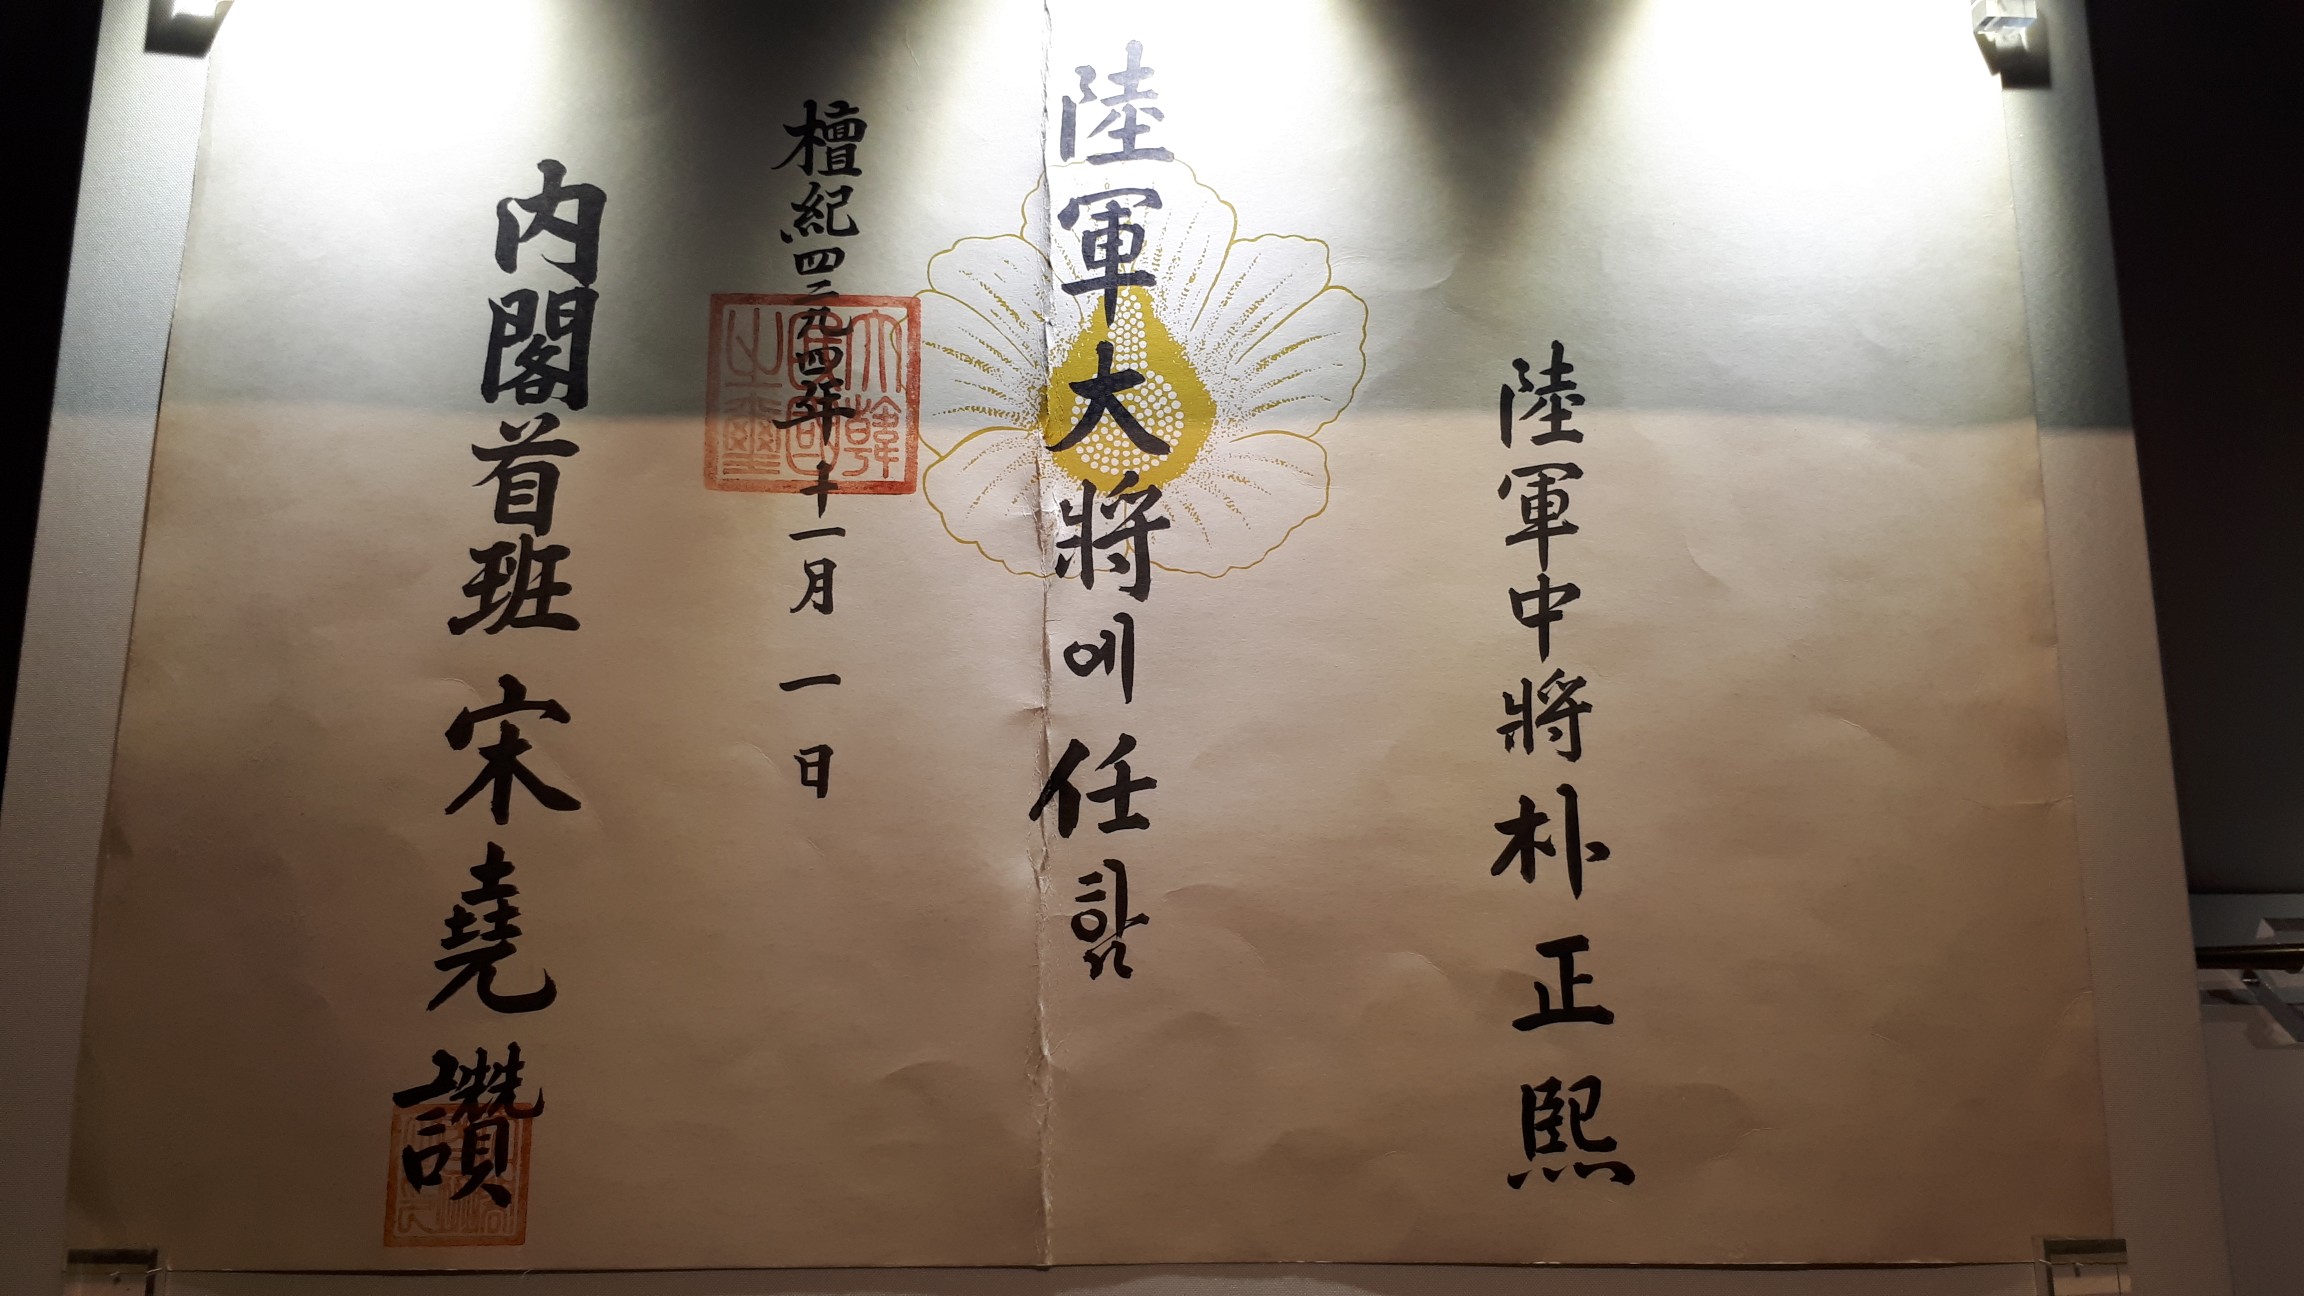 陸軍中將 朴正熙
陸軍大將에 任함
檀紀四二九四年 十一月 一日
大韓民國之璽
內閣首班 宋堯讚